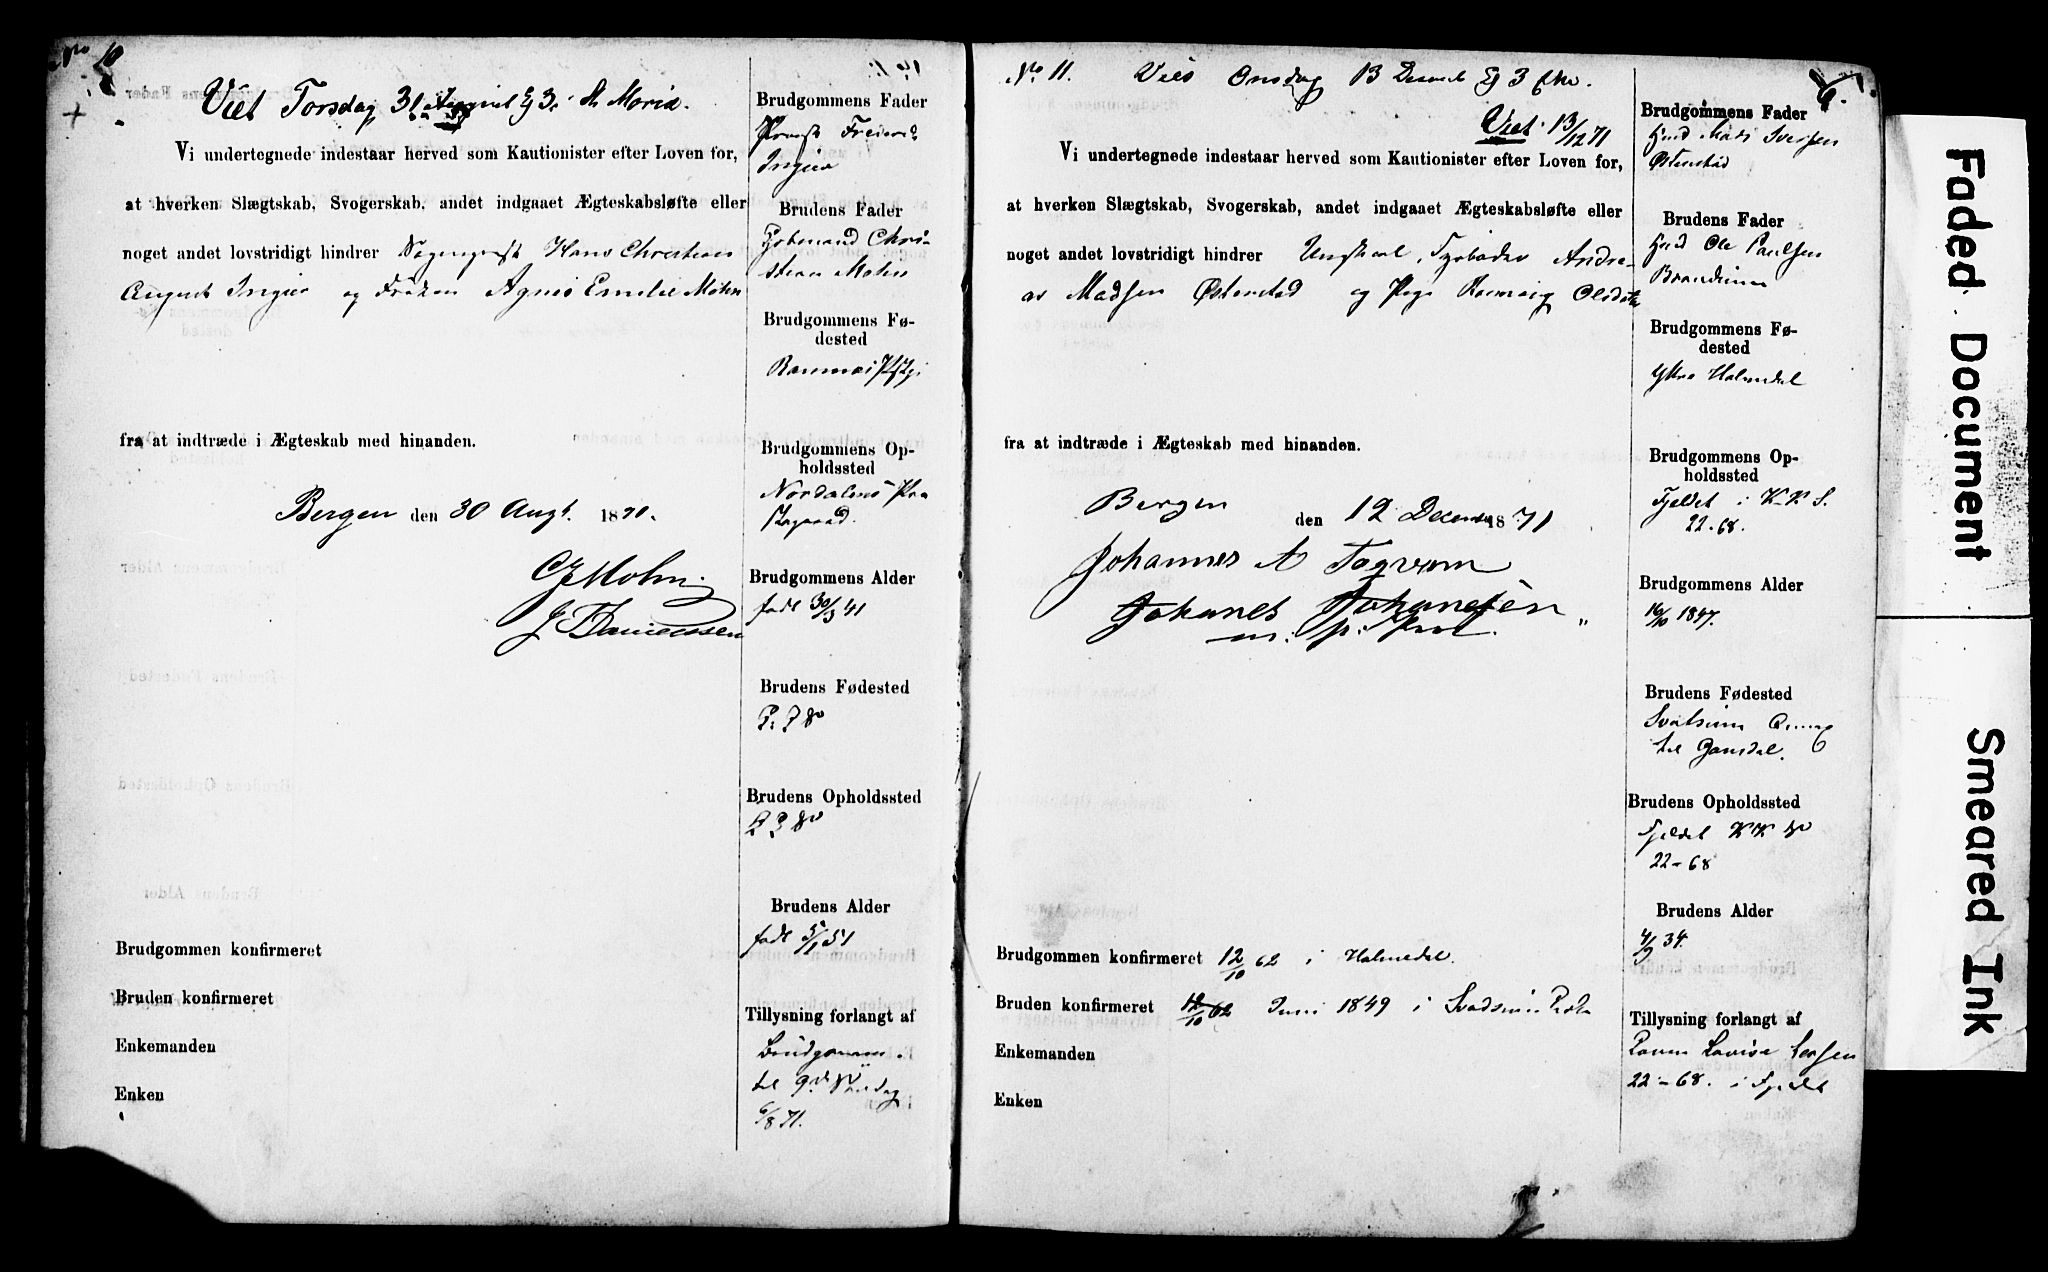 No 10
Viet Torsdag 31 August Kl 3 i St Maria.
Vi undertegnede indestaar herved som Kautionister efter Loven for,
at hverken Slægtskab, Svogerskab, andet indgaaet Ægteskabsløfte eller
noget andet lovstridigt hindrer Sogneprest Hans Christian
August Ingier og Frøken Agnes Emilie Mohn
fra at indtræde i Ægteskab med hinanden.
Bergen den 30 Augt. 1871.
CJMohn.
J Danielssen
Brudgommen konfirmeret
Bruden konfirmeret
Enkemanden
Enken
Brudgommens Fader
Provst Frederik
Ingier
Brudens Fader
Kjøbmand Chri-
stian Mohn
Brudgommens Fø-
dested
Brudgommens Op-
holdssted
Nordalens Præ
stegaard.
Brudgommens Alder
født 30/3 41
Brudens Fødested
Brudens Opholdssted
Brudens Alder
født 5/1 51
Tillysning forlangt af
Brudgommen.
til
6/8 71.
No 11. Vies Onsdag 13 Decemb Kl 3 Efm.
Viet 13/12 71
Vi undertegnede indestaar herved som Kautionister efter Loven for,
at hverken Slægtskab, Svogerskab, andet indgaaet Ægteskabsløfte eller
noget andet lovstridigt hindrer Ungkarl, Fyrbøder Andre-
as Madsen Østenstad og Pige Rannveig Olsdatter
fra at indtræde i Ægteskab med hinanden.
Bergen den 12 December 1871
Johannes A Tagvam
Johanes Johanesen
m. p. Pen.
Brudgommen konfirmeret 12/10 62 i Holmedal.
Bruden konfirmeret 12/10 62 Juni 1849 i
Enkemanden
Enken
6.
Brudgommens Fader
Gmd Mads Iversen
Østenstad
Brudens Fader
Gmd Ole Paulsen
Brudgommens Fø-
dested
Ytre Holmedal
Brudgommens Op-
holdssted
Fjeldet i K K S.
22-68.
Brudgommens Alder
16/10 1847.
Brudens Fødested
Brudens Opholdssted
Fjeldet K K S
22-68
Brudens Alder
4/9 34.
Tillysning forlangt af
Lovise
22-68. i Fjeldet
Faded Document
Smeared Ink